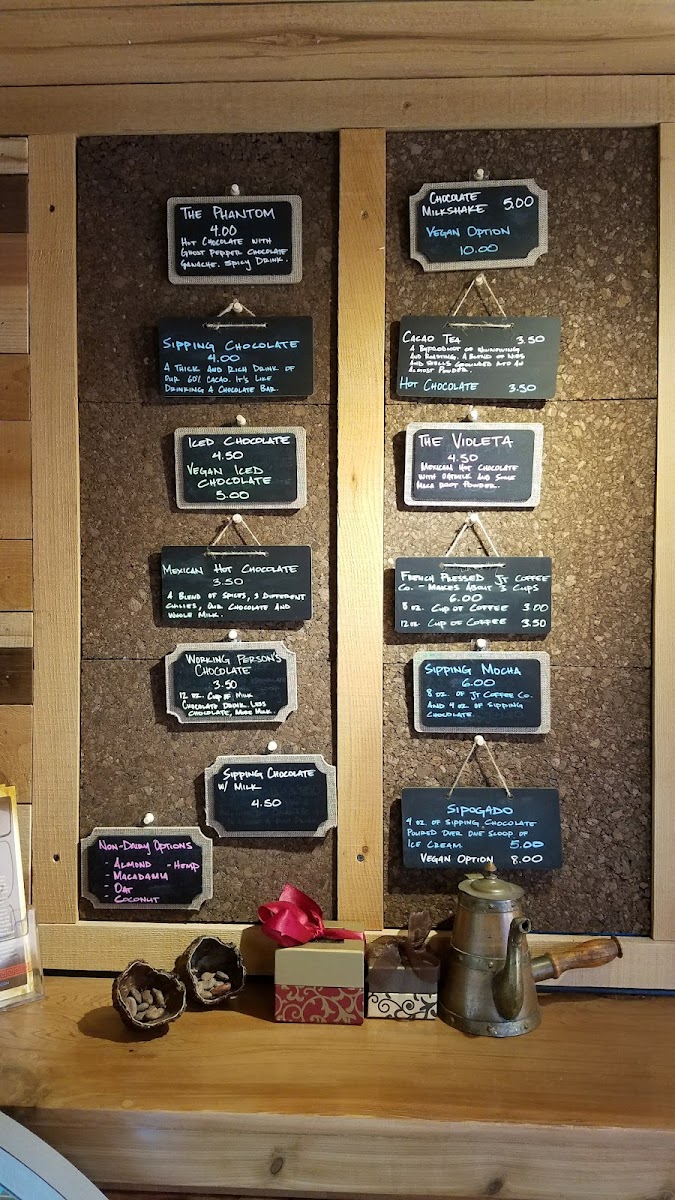 THE PHANTOM
4.00
HOT CHOCOLATE WITH
GHOST PEPPER CHOCOLATE
GANACHE. SPICY DRINK.
SIPPING CHOCOLATE
4.00
A THICK AND RICH DRINK OF
OUR 60% CACAO. IT'S LIKE
DRINKING A CHOCOLATE BAR.
ICED CHOCOLATE
4.50
VEGAN ICED
CHOCOLATE
5.00
MEXICAN HOT CHOCOLATE
3.50
A BLEND OF SPICES, 3 DIFFERENT
CHILIES, OUR CHOCOLATE AND
WHOLE MILK.
WORKING PERSON'S
CHOCOLATE
3.50
12 OZ. CUP OF MILK
CHOCOLATE DRINK. LESS
CHOCOLATE, MORE MILK.
SIPPING CHOCOLATE
W/ MILK
4.50
NON-DAIRY OPTIONS
- ALMOND - HEMP
- MACADAMIA
- OAT
- COCONUT
CHOCOLATE
MILKSHAKE 5.00
VEGAN OPTION
10.00
CACAO TEA 3.50
A BYPRODUCT OF WINNOWING
AND ROASTING, A BLEND OF NIBS
AND SHELLS GROUNDED INTO AN
ALMOST POWDER.
HOT CHOCOLATE 3.50
THE VIOLETA
4.50
MEXICAN HOT CHOCOLATE
WITH OATMILK AND SOME
MACA ROOT POWDER.
FRENCH PRESSED JT COFFEE
CO. - MAKES ABOUT 3 CUPS
6.00
8 OZ. CUP OF COFFEE 3.00
12 OZ. CUP OF COFFEE 3.50
SIPPING MOCHA
6.00
8 OZ. OF JT COFFEE CO.
AND 4 OZ OF SIPPING
CHOCOLATE.
SIPOGADO
4 OZ. OF SIPPING CHOCOLATE
POURED OVER ONE SCOOP OF
ICE CREAM 5.00
VEGAN OPTION 8.00